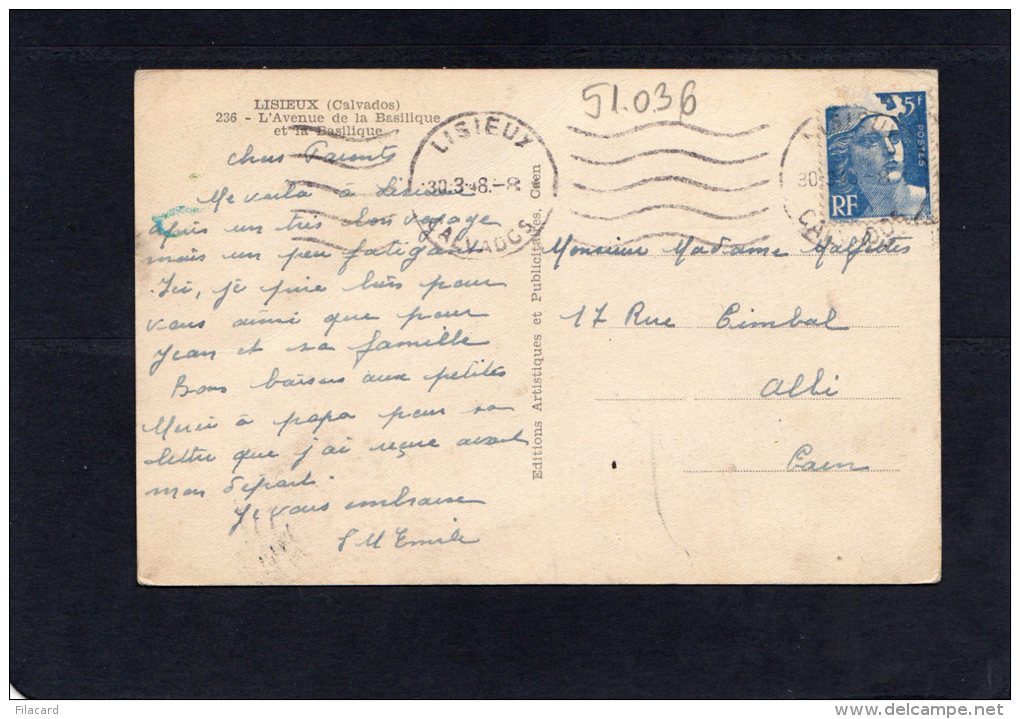 LISIEUX (Calvados)
236 - L'Avenue de la Basilique
et la Basilique
51.036
LISIEUX
30.3.48.-8
CALVADOS
5F
POSTES
RF
Editions Artistiques et Publicitaires, Caen
chers Parents
Me voilà à Lisieux
après un très bon voyage
mais un peu fatigant
Ici, je prie bien pour
vous ainsi que pour
Jean et sa famille
Bons baisers aux petites
Merci à papa pour sa
lettre que j'ai reçue avant
mon départ.
Je vous embrasse
S M Emile
Monsieur Madame
17 Rue Cimbal
Albi
Filacard
delcampe.net